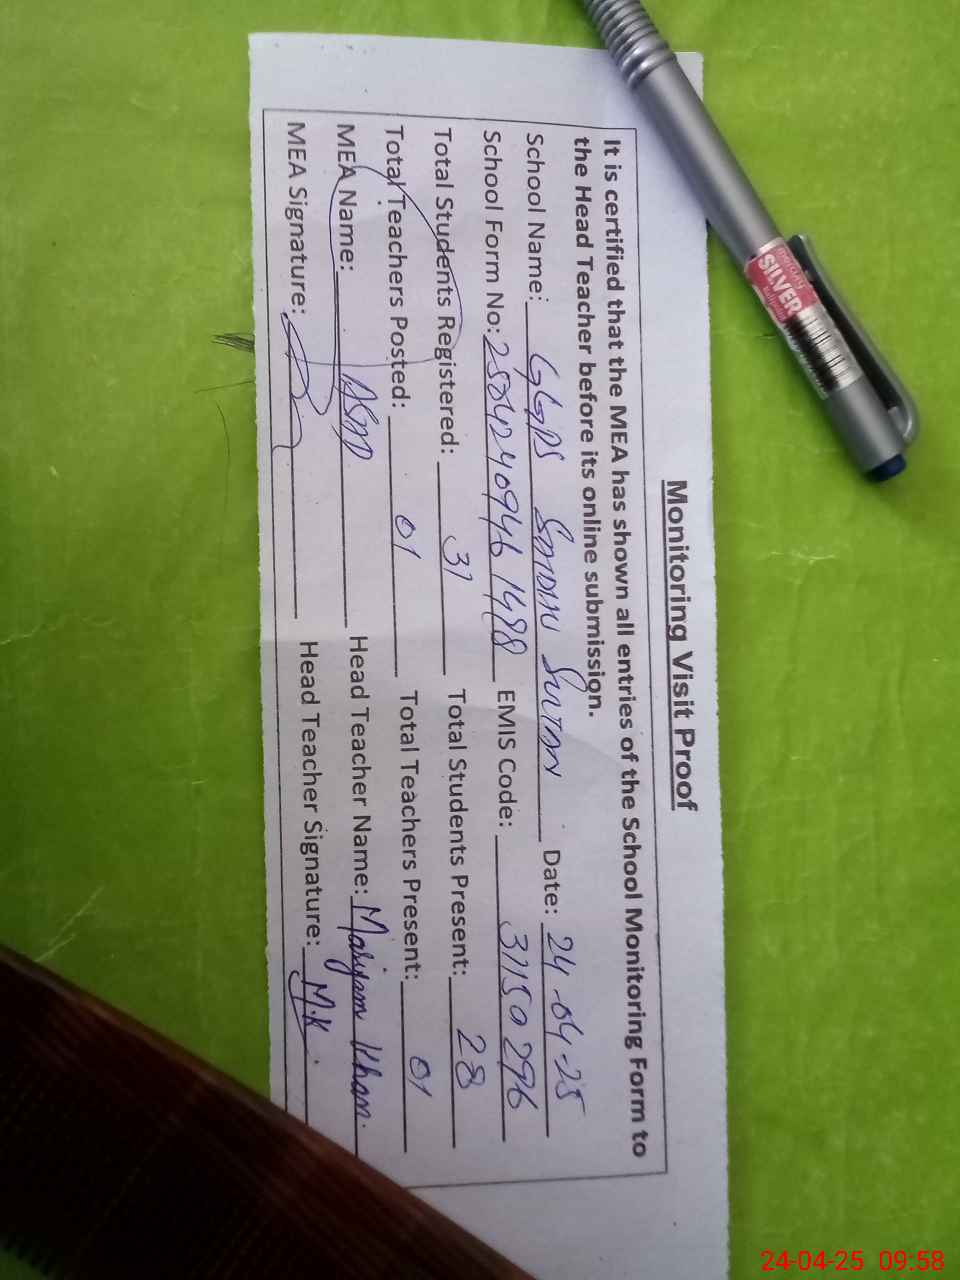 Monitoring Visit Proof
It is certified that the MEA has shown all entries of the School Monitoring Form to
the Head Teacher before its online submission.
School Name: GGPS Sultan Date: 24-04-25
School Form No: EMIS Code: 37150296
Total Students Registered: 31 Total Students Present: 28
Total Teachers Posted: 01 Total Teachers Present: 01
MEA Name: Head Teacher Name: Mariyam Khan.
MEA Signature: Head Teacher Signature: M.K
mercury
SILVER
ballpoint
24-04-25 09:58